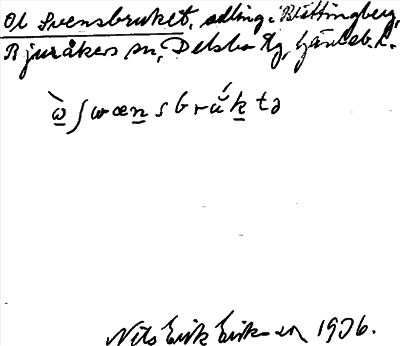 Ol Svensbruket, odling i Blättingberg,
Bjuråkers sn, Delsbo tg, Gävleb. l.
ὼ ʃwænsbrúktə
Nils Erik Eriksson 1936.